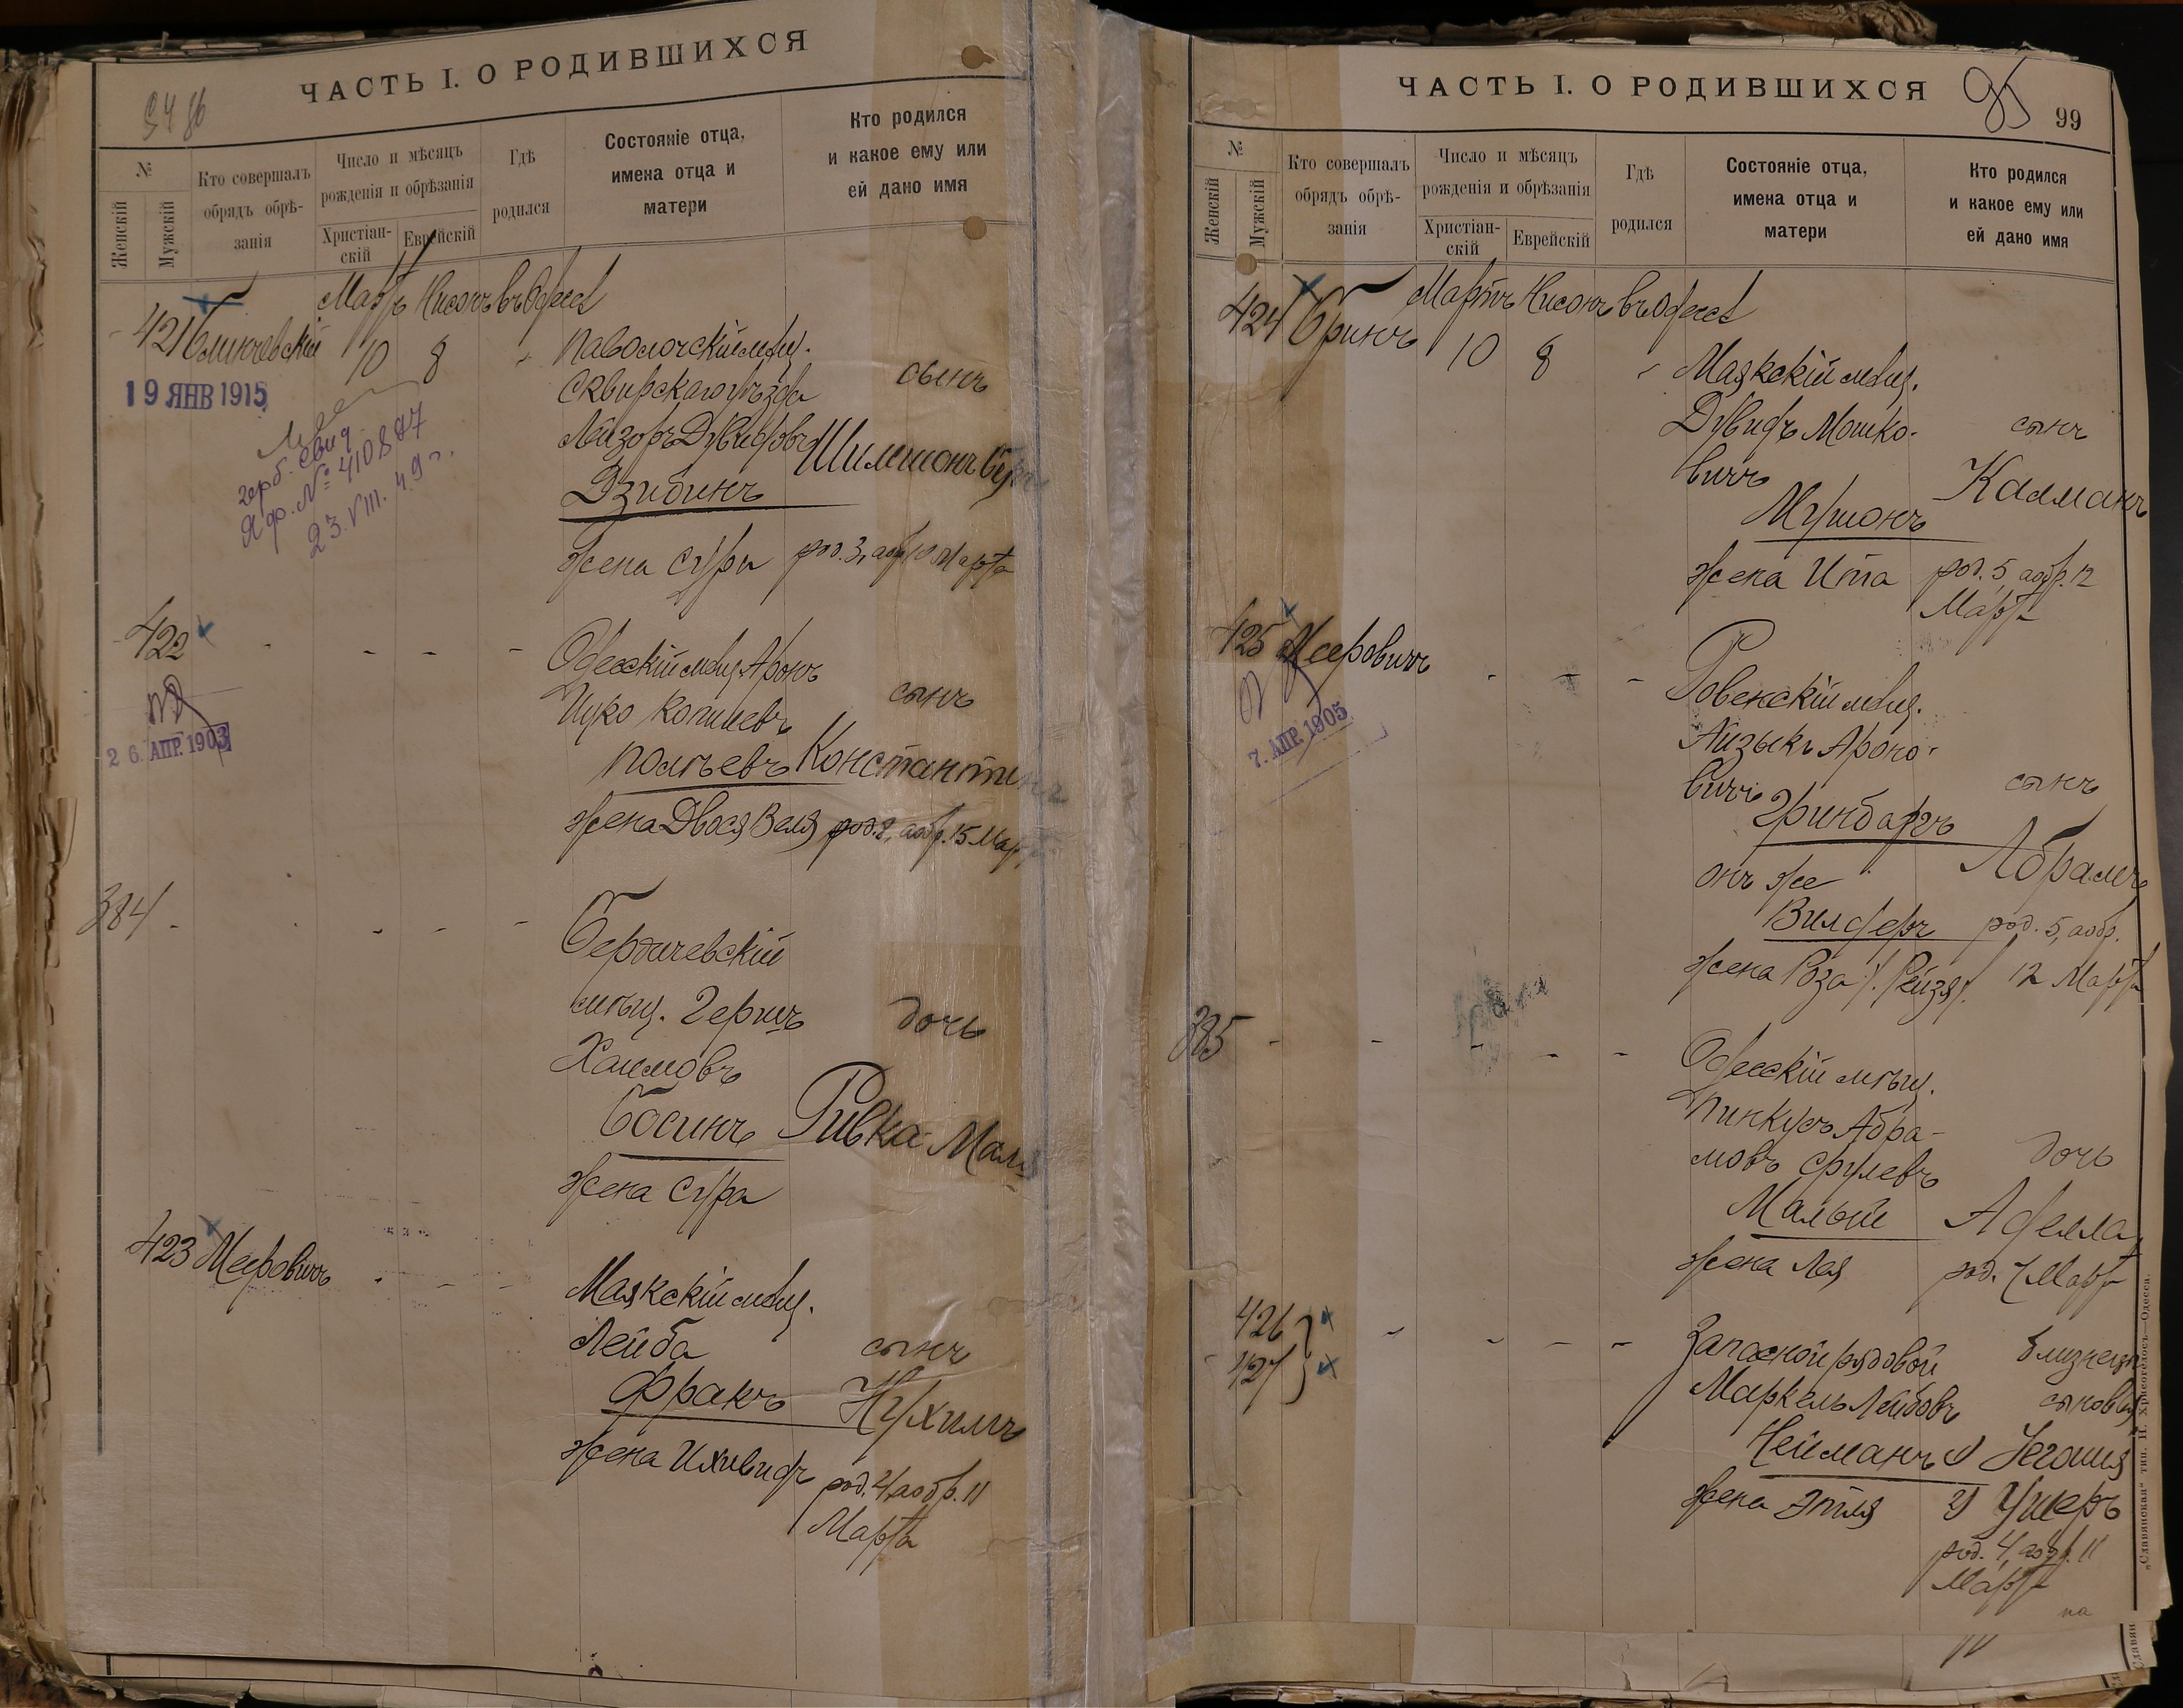 ЧАСТЬ I. О РОДИВШИХСЯ
№
Женскій
Мужскій
Кто совершалъ
обрядъ обрѣ-
занія
Число и мѣсяцъ
рожденія и обрѣзанія
Христіан-
скій
Еврейскій
Гдѣ
родился
Состояніе отца,
имена отца и
матери
Кто родился
и какое ему или
ей дано имя
Мартъ Нисонъ въ Одессѣ
421 Блинчевскій 10 8 Паволочскій мѣщ.
19 ЯНВ 1915
Сквирскаго уѣзда
сынъ
Лейзоръ Дувидовъ
Шимшонъ
Дзибинъ
жена Сура
род. 3, а обр. 10 Марта
герб. свид.
№ 410887
23.VIII.49 г.
422 - - - -
Одесскій мѣщ. Аронъ
Ицко Копилевъ
сынъ
26. АПР. 1903
Полѣевъ Константинъ
жена Двося Веля род. 8, а обр. 15 Март
384 - - - -
Бердичевскій
мѣщ. Гершъ
дочь
Хаимовъ
Босинъ Ривка-Маля
жена Сура
423 Мееровичъ - - -
Маякскій мѣщ.
Лейба
сынъ
Фракъ Нухимъ
жена Ихивидъ
род. 4, а обр. 11
Марта
ЧАСТЬ I. О РОДИВШИХСЯ
95
99
№
Женскій
Мужскій
Кто совершалъ
обрядъ обрѣ-
занія
Число и мѣсяцъ
рожденія и обрѣзанія
Христіан-
скій
Еврейскій
Гдѣ
родился
Состояніе отца,
имена отца и
матери
Кто родился
и какое ему или
ей дано имя
Мартъ Нисонъ въ Одессѣ
424 Бринъ 10 8
Маякскій мѣщ.
Дувидъ Мошко-
сынъ
вичъ
Калманъ
Мушонъ
жена Ита
род. 5, а обр. 12
Марта
425 Мееровичъ - - -
7. АПР. 1905
Ровенскій мѣщ.
Айзыкъ Ароно-
вичъ
сынъ
Гринбаргъ
Абрамъ
онъ же
Вилферъ
род. 5, а обр.
жена Роза /Рейзя/
12 Марта
385 - - - - -
Одесскій мѣщ.
Пинкусъ Абра-
мовъ Срулевъ
дочь
Малый Аделла
жена Лея
род. 7 Марта
426
427
Запасной рядовой
близнецы
Маркель Лейбовъ
сыновья
Нейманъ
Іегошія
жена Этля
2) Ушеръ
род. 4, а обр. 11
Марта
„Славянская“ тип. Н. Хрисогелосъ—Одесса.